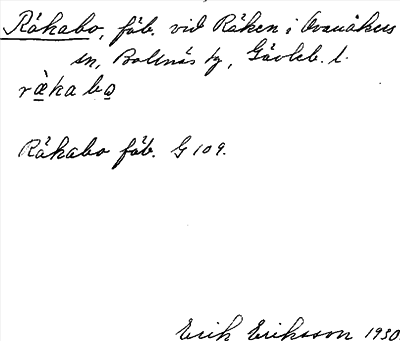 Råkabo, fäb. vid Råken i Ovanåkers
sn, Bollnäs tg, Gävleb. l.
råkabo
Råkabo fäb. G 109.
Erik Eriksson 1930.